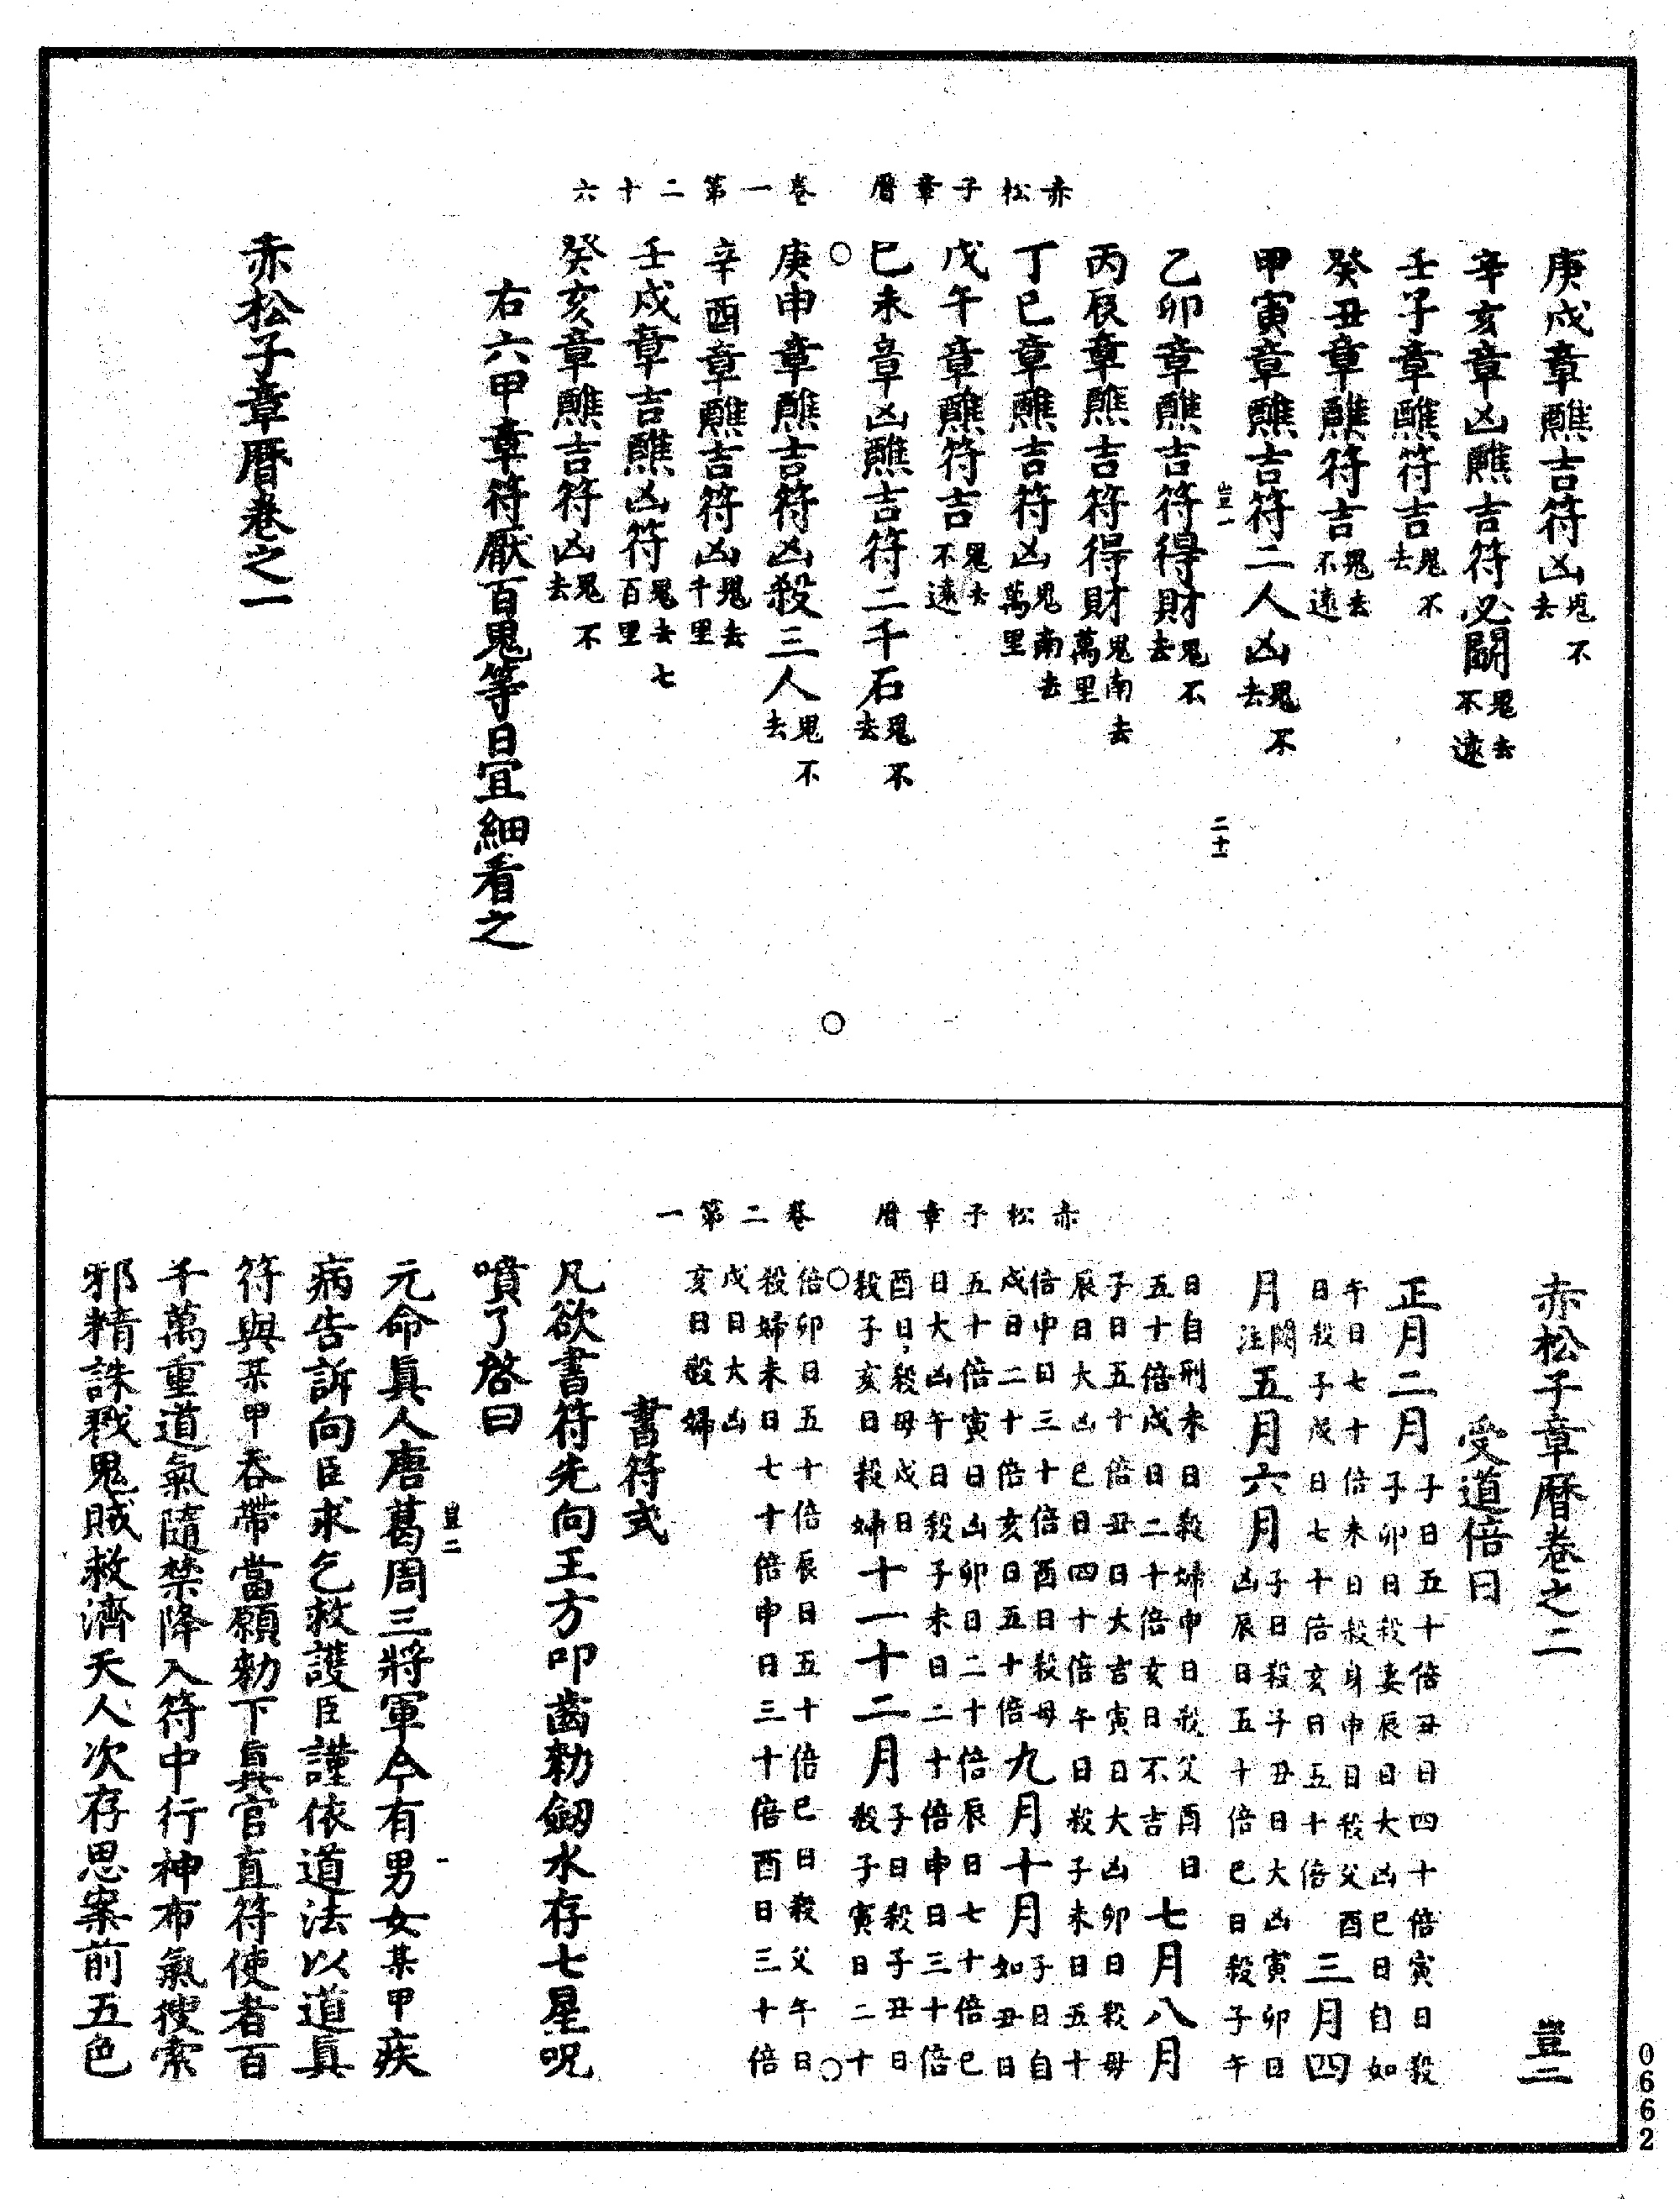 赤松子章曆 卷一第二十六
庚戌章醮吉符凶鬼不去
辛亥章凶醮吉符必鬭鬼去不遠
壬子章醮符吉鬼不去
癸丑章醮符吉鬼去不遠
甲寅章醮吉符二人凶鬼不去
豈一 二十一
乙卯章醮吉符得財鬼不去
丙辰章醮吉符得財鬼南去萬里
丁巳章醮吉符凶鬼南去萬里
戊午章醮符吉鬼去不遠
巳未章凶醮吉符二千石鬼不去
庚申章醮吉符凶殺三人鬼不去
辛酉章醮吉符凶鬼去千里
壬戌章吉醮凶符鬼去七百里
癸亥章醮吉符凶鬼不去
右六甲章符厭百鬼等日宜細看之
赤松子章曆卷之一
赤松子章曆 卷二第一
赤松子章曆卷之二 豈二
受道倍日
正月二月子日五十倍丑日四十倍寅日殺子卯日殺妻辰日大凶巳日自如
午日七十倍未日殺身申日殺父酉日殺子戌日七十倍亥日五十倍三月四
月闕注五月六月子日殺子丑日大凶寅卯日凶辰日五十倍巳日殺子午
日自刑未日殺婦申日殺父酉日五十倍戌日二十倍亥日不吉七月八月
子日五十倍丑日大吉寅日大凶卯日殺母辰日大凶巳日四十倍午日殺子未日五十
倍申日三十倍酉日殺母戌日二十倍亥日五十倍九月十月子日自如丑日
五十倍寅日凶卯日二十倍辰日七十倍巳日大凶午日殺子未日二十倍申日三十倍
酉日殺母戌日殺子亥日殺婦十一十二月子日殺子丑日殺子寅日二十
倍卯日五十倍辰日五十倍巳日殺父午日殺婦未日七十倍申日三十倍酉日三十倍
戌日大凶亥日殺婦
書符式
凡欲書符先向王方叩齒勑劒水存七星呪
噴了啓曰
豈二 一
元命眞人唐葛周三將軍今有男女某甲疾
病告訴向臣求乞救護臣謹依道法以道眞
符與某甲吞帶當願勑下眞官直符使者百
千萬重道氣隨禁降入符中行神布氣搜索
邪精誅戮鬼賊救濟天人次存思案前五色
0662